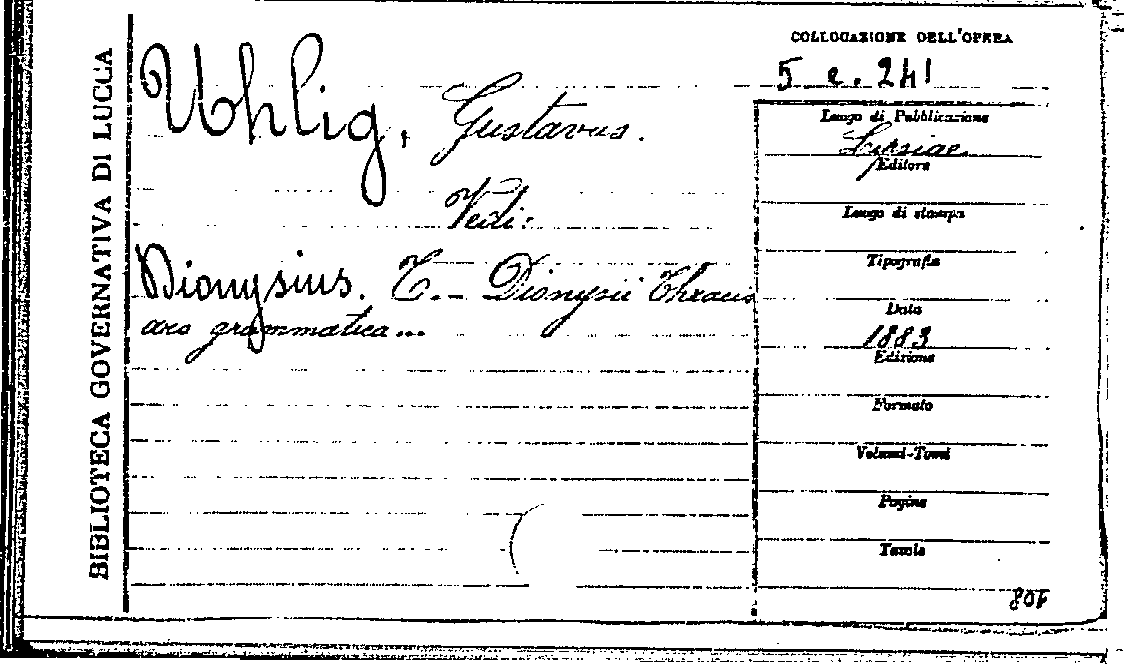 BIBLIOTECA GOVERNATIVA DI LUCCA
Uhlig, Gustavus.
Vedi:
Dionysius. T. - Dionysii Thracis
ars grammatica...
COLLOCAZIONE DELL'OPERA
5 e. 241
Luogo di Pubblicazione
Lipsiae
Editore
Luogo di stampa
Tipografia
Data
1883
Edizione
Formato
Volumi-Tomi
Pagine
Tavole